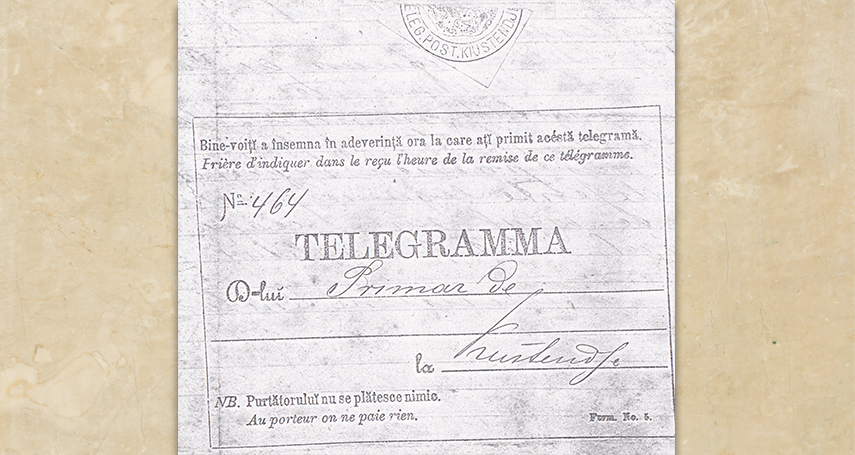 ELEG. POST. KIUSTENDJE
Bine-voiți a însemna în adeverință ora la care ați primit acéstă telegramă.
Prière d'indiquer dans le reçu l'heure de la remise de ce télégramme.
No. 464
TELEGRAMMA
D-luĭ Primar de
la Kustendje
NB. Purtătoruluĭ nu se plătesce nimic.
Au porteur on ne paie rien.
Form. No. 5.